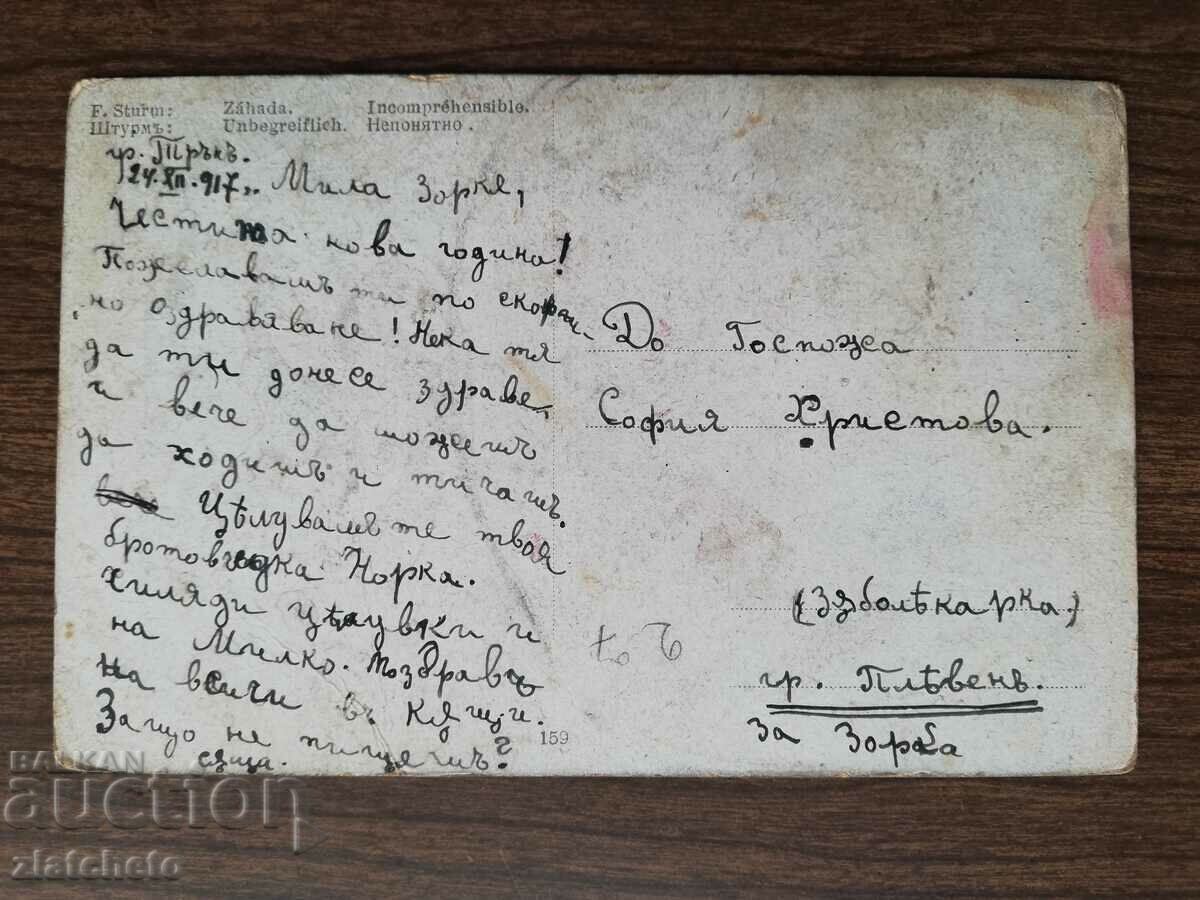 F. Sturm: Záhada. Incompréhensible.
Штурмъ: Unbegreiflich. Непонятно.
гр. Трънъ.
24.XII.917.. Мила Зорке,
Честита нова година!
Пожелавамъ ти по скорош-
но оздравяване! Нека тя
да ти донесе здраве,
и вече да можешъ
да ходишъ и тичашъ.
Цѣлувамъ те твоя
братовчедка Норка.
Хиляди цѣлувки и
на Милко. Поздравъ
на всички въ кящи.
Защо не пишешъ?
сяща.
159
До Госпожа
София Христова.
(Зѫболѣкарка.)
гр. Плѣвенъ.
За Зорка
BALKAN
auction
zlatcheto